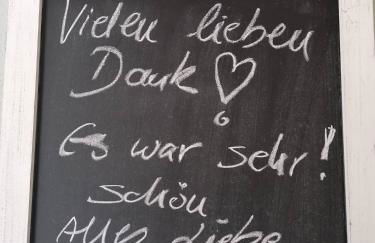 Vielen lieben
Dank ♡
Es war sehr!
schön
Alles Liebe